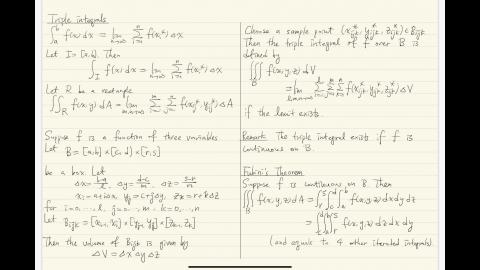 Triple integrals
∫_a^b f(x) dx = lim_{n→∞} Σ_{i=1}^n f(x_i*) Δx
Let I = [a,b]. Then
∫_I f(x) dx = lim_{n→∞} Σ_{i=1}^n f(x_i*) Δx
Let R be a rectangle
∬_R f(x,y) dA = lim_{m,n→∞} Σ_{i=1}^m Σ_{j=1}^n f(x_ij*, y_ij*) ΔA
Suppose f is a function of three variables.
Let B = [a,b] × [c,d] × [r,s]
be a box. Let
Δx = (b-a)/l, Δy = (d-c)/m, Δz = (s-r)/n
x_i = a+iΔx, y_j = c+jΔy, z_k = r+kΔz
for i=0,…,l, j=0,…,m, k=0,…,n
Let B_ijk = [x_{i-1}, x_i] × [y_{j-1}, y_j] × [z_{k-1}, z_k]
Then the volume of B_ijk is given by
ΔV = Δx Δy Δz
Choose a sample point (x_ijk*, y_ijk*, z_ijk*) ∈ B_ijk
Then the triple integral of f over B is
defined by
∭_B f(x,y,z) dV
= lim_{l,m,n→∞} Σ_{i=1}^l Σ_{j=1}^m Σ_{k=1}^n f(x_ijk*, y_ijk*, z_ijk*) ΔV
if the limit exists.
Remark: The triple integral exists if f is
continuous on B.
Fubini's Theorem
Suppose f is continuous on B. Then
∭_B f(x,y,z) dA = ∫_r^s ∫_c^d ∫_a^b f(x,y,z) dx dy dz
= ∫_c^d ∫_a^b ∫_r^s f(x,y,z) dz dx dy
(and equals to 4 other iterated integrals)